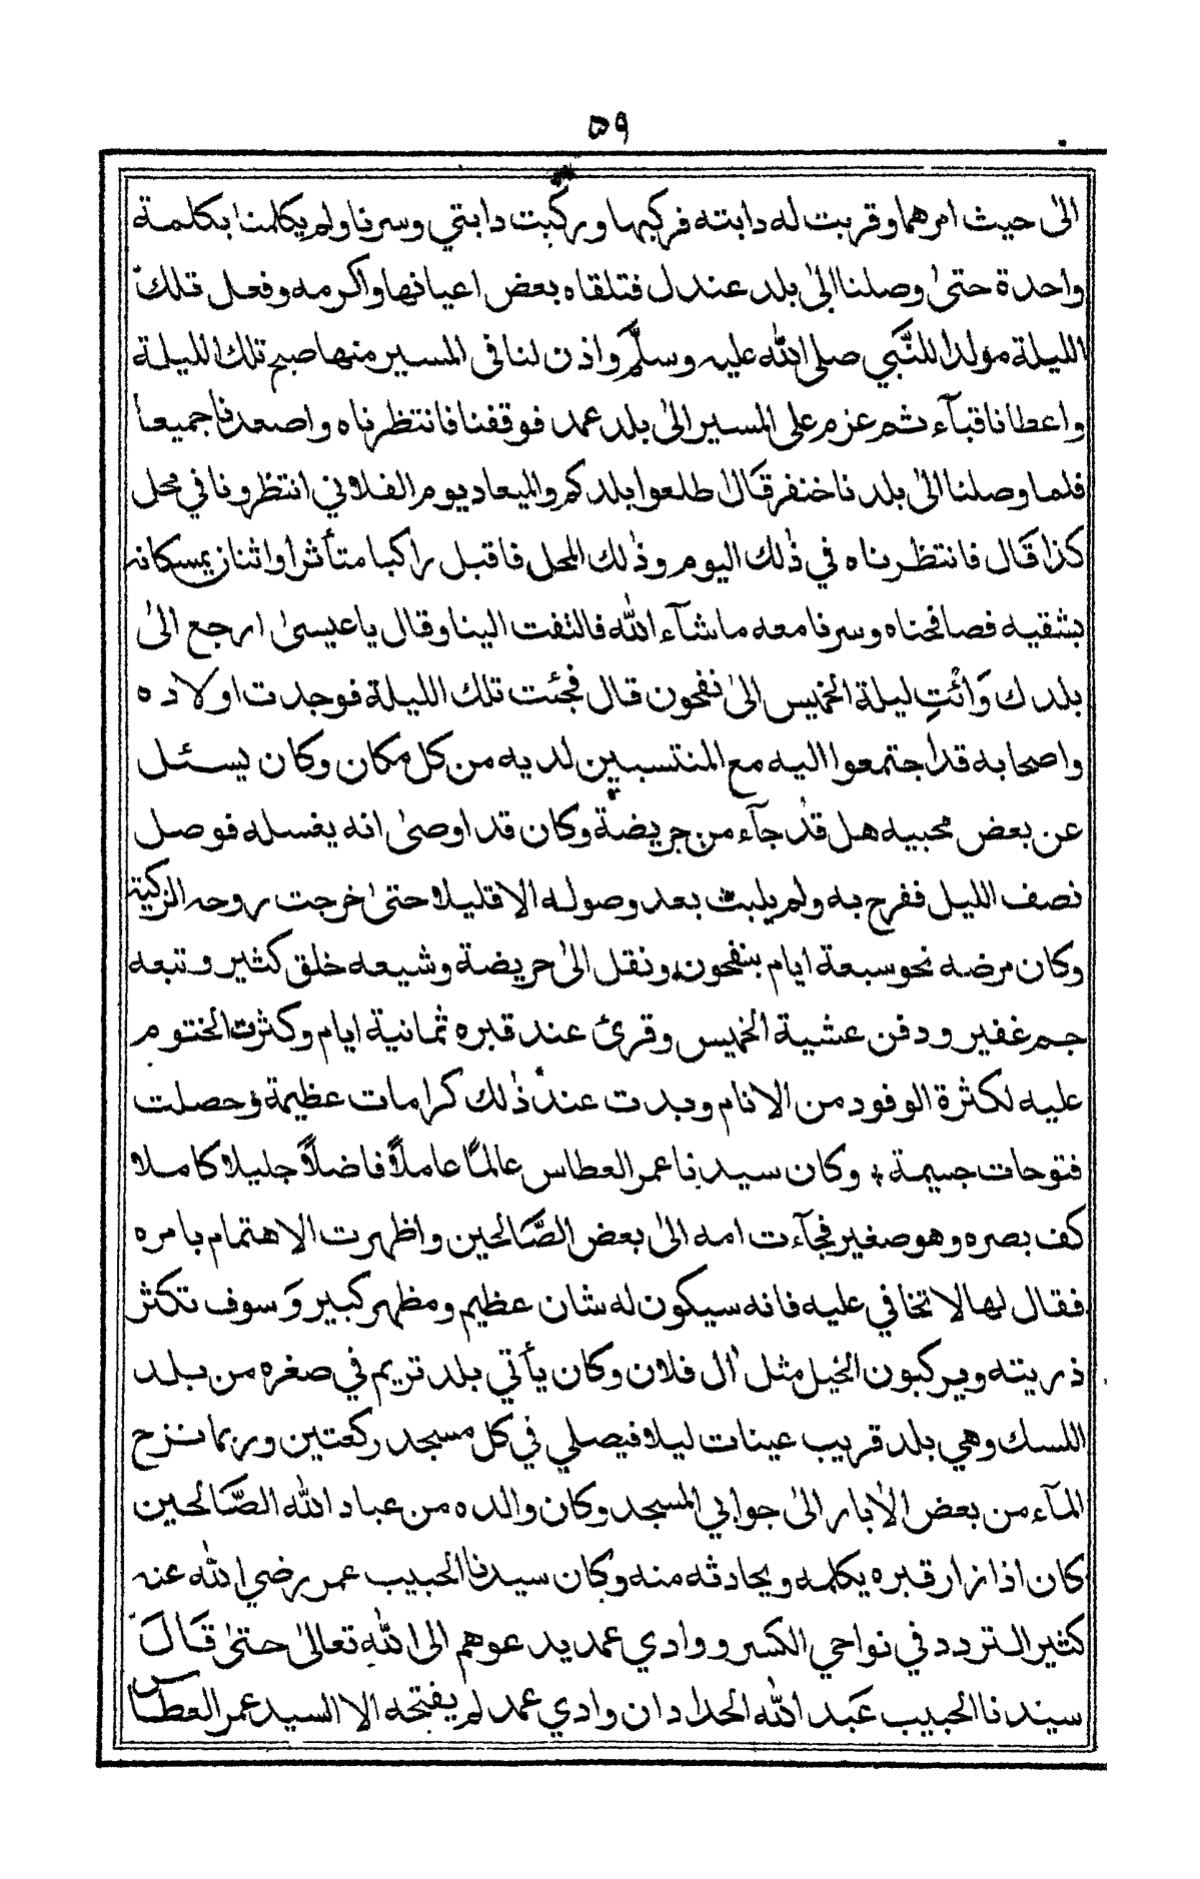 ٥٩
الىٰ حيث امرهما وقربت له دابته فركبها وركبت دابتي وسرنا ولم يكلمنا بكلمة
واحدة حتىٰ وصلنا الىٰ بلد عندل فتلقاه بعض اعيانها واكرمه وفعل تلك
الليلة مولدا للنَّبي صلى الله عليه وسلَّم واذن لنا فى المسير منها صبح تلك الليلة
واعطانا قبآء ثم عزم على المسير الىٰ بلد عمد فوقفنا فانتظرناه واصعدنا جميعا
فلما وصلنا الىٰ بلدنا خنفر قَال اطلعوا بلدكم والميعاد يوم الفلاني انتظرونا في محل
كذا قَال فانتظرناه في ذٰلك اليوم وذٰلك المحل فاقبل راكبا متأثرا واثنان يمسكانه
بشقيه فصافحناه وسرنا معه ماشآء الله فالتفت الينا وقال يا عيسىٰ ارجع الىٰ
بلدك وَائْتِ ليلة الخميس الىٰ نفحون قال فجئت تلك الليلة فوجدت اولاده
واصحابه قد اجتمعوا اليه مع المنتسبين لديه من كل مكان وكان يسئل
عن بعض محبيه هل قد جآء من حريضة وكان قد اوصىٰ انه يغسله فوصل
نصف الليل ففرح به ولم يلبث بعد وصوله الا قليلا حتىٰ خرجت روحه الزكية
وكان مرضه نحو سبعة ايام بنفحون ونقل الىٰ حريضة وشيعه خلق كثير وتبعه
جم غفير ودفن عشية الخميس وقرئ عند قبره ثمانية ايام وكثرت الختوم
عليه لكثرة الوفود من الانام وبدت عند ذٰلك كرامات عظيمة وحصلت
فتوحات جسيمة ؛ وكان سيدنا عمر العطاس عالمًا عاملاً فاضلاً جليلا كاملا
كف بصره وهو صغير فجآءت امه الىٰ بعض الصَّالحين واظهرت الاهتمام بامره
فقال لها لا تخافي عليه فانه سيكون له شان عظيم ومظهر كبير وَسوف تكثر
ذريته ويركبون الخيل مثل اٰل فلان وكان يأتي بلد تريم في صغره من بلد
اللسك وهي بلد قريب عينات ليلا فيصلي في كل مسجد ركعتين وربما نزح
المآء من بعض الاٰبار الىٰ جوابي المسجد وكان والده من عباد الله الصَّالحين
كان اذا زار قبره يكلمه ويحادثه منه وكان سيدنا الحبيب عمر رضي الله عنه
كثير التردد في نواحي الكسر ووادي عمد يدعوهم الى الله تعالىٰ حتىٰ قَالَ
سيدنا الحبيب عَبد الله الحداد ان وادي عمد لم يفتحه الا السيد عمر العطاس